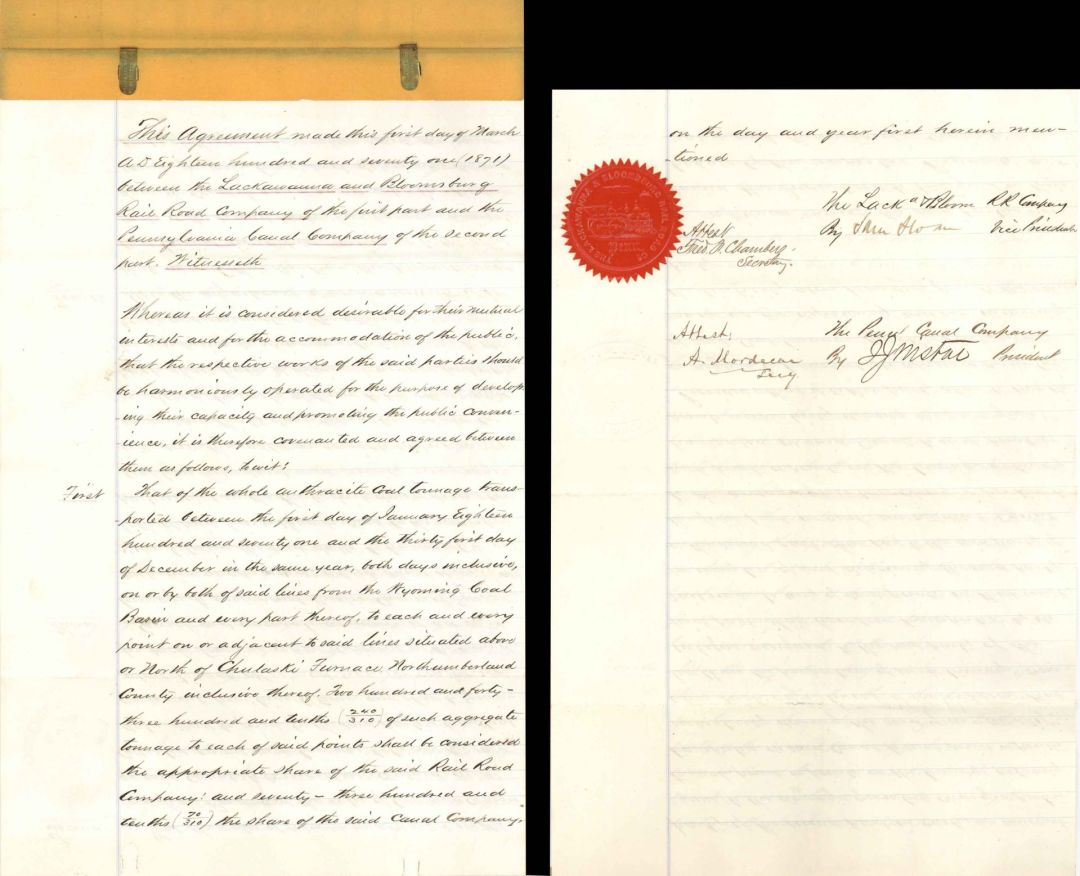 This Agreement made this first day of March
A.D. Eighteen hundred and seventy one (1871)
between the Lackawanna and Bloomsburg
Rail Road Company of the first part and the
Pennsylvania Canal Company of the second
part. Witnesseth
Whereas it is considered desirable for their mutual
interests and for the accommodation of the public,
that the respective works of the said parties should
be harmoniously operated for the purpose of develop-
ing their capacity and promoting the public conven-
ience, it is therefore covenanted and agreed between
them as follows, to wit:
First That of the whole anthracite Coal tonnage trans-
ported between the first day of January Eighteen
hundred and seventy one and the thirty first day
of December in the same year, both days inclusive,
on or by both of said lines from the Wyoming Coal
Basin and every part thereof, to each and every
point on or adjacent to said lines situated above
or North of Chulaski Furnace, Northumberland
County inclusive thereof. Two hundred and forty-
three hundred and tenths (240/310) of such aggregate
tonnage to each of said points shall be considered
the appropriate share of the said Rail Road
Company: and seventy - three hundred and
tenths (70/310) the share of the said Canal Company.
on the day and year first herein men-
-tioned
THE LACKAWANNA & BLOOMSBURG RAIL ROAD CO
The Lack a & Bloom R.R. Company
By Sam Sloan Vice President
Attest
Theo. F. Chambers.
Secretary.
The Penn Canal Company
By President
Attest:
A. Mordecai
Secy